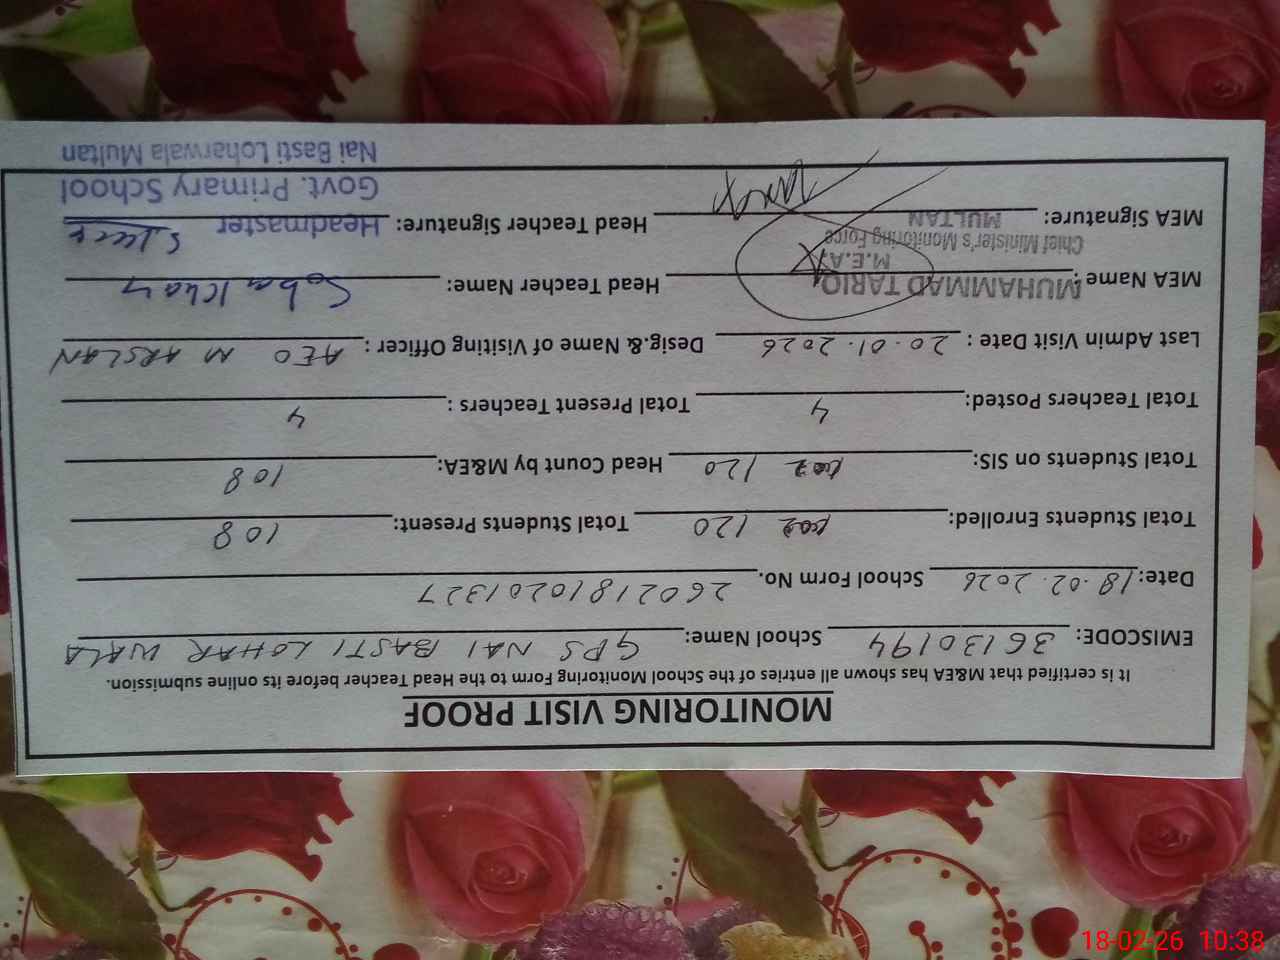 MONITORING VISIT PROOF
It is certified that M&EA has shown all entries of the School Monitoring Form to the Head Teacher before its online submission.
EMISCODE: 36130194 School Name: GPS NAI BASTI LOHAR WALA
Date: 18.02.2026 School Form No. 26021810201327
Total Students Enrolled: 120 Total Students Present: 108
Total Students on SIS: 120 Head Count by M&EA: 108
Total Teachers Posted: 4 Total Present Teachers : 4
Last Admin Visit Date : 20.01.2026 Desig.&. Name of Visiting Officer : AEO M ARSLAN
MEA Name : MUHAMMAD TARIQ Head Teacher Name: Saba Khan
M.E.A
Chief Minister's Monitoring Force
MULTAN
MEA Signature: Head Teacher Signature: Headmaster
Govt. Primary School
Nai Basti Loharwala Multan
18-02-26 10:38